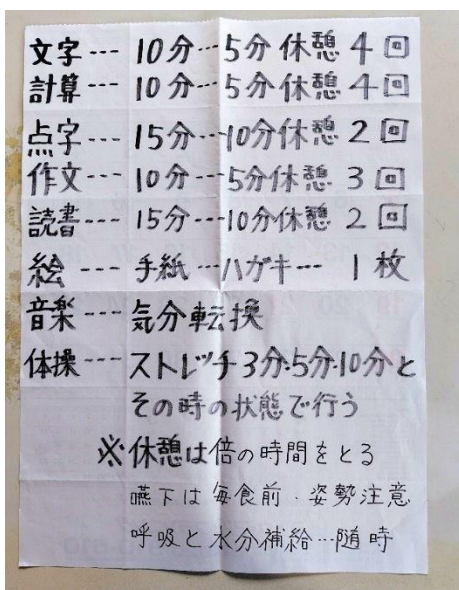 文字--- 10分…5分休憩 4回
計算--- 10分…5分休憩 4回
点字--- 15分…10分休憩 2回
作文--- 10分…5分休憩 3回
読書--- 15分…10分休憩 2回
絵--- 手紙…ハガキ… 1枚
音楽--- 気分転換
体操--- ストレッチ3分・5分・10分と
その時の状態で行う
※休憩は倍の時間をとる
嚥下は毎食前・姿勢注意
呼吸と水分補給…随時